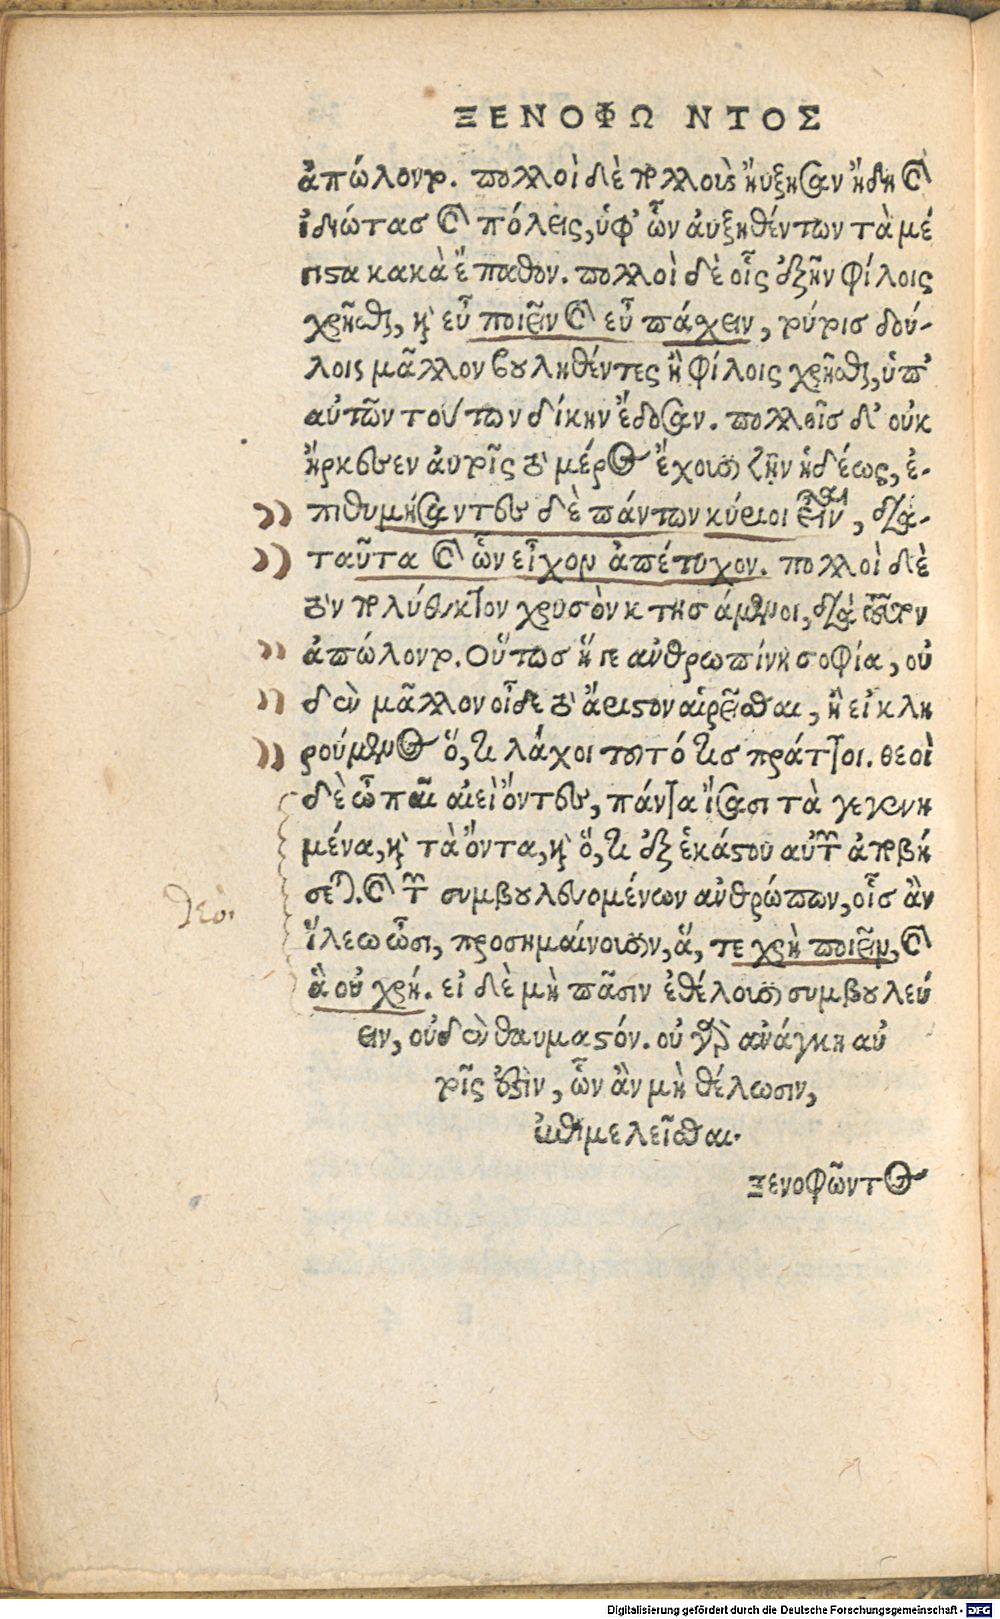 ΞΕΝΟΦΩΝΤΟΣ
ἀπώλοντο. πολλοὶ δὲ πολλοὺς ηὔξησαν ἤδη καὶ
ἰδιώτας καὶ πόλεις, ὑφ' ὧν αὐξηθέντων τὰ μέ
γιστα κακὰ ἔπαθον. πολλοὶ δὲ οἷς ἐξῆν φίλοις
χρῆσθαι, καὶ εὖ ποιεῖν καὶ εὖ πάχειν, τούτοις δού-
λοις μᾶλλον βουληθέντες ἢ φίλοις χρῆσθαι, ὑπ'
αὐτῶν τούτων δίκην ἔδοσαν. πολλοῖς δ' οὐκ
ἤρκεσεν αὐτοῖς τὸ μέρος ἔχουσι ζῆν ἡδέως, ἐ-
πιθυμήσαντες δὲ πάντων κύριοι εἶναι, διὰ
ταῦτα καὶ ὧν εἶχον ἀπέτυχον. πολλοὶ δὲ
τὸν πολύευκτον χρυσὸν κτησάμενοι, διὰ τοῦτον
ἀπώλοντο. Οὕτως ἥ γε ἀνθρωπίνη σοφία, οὐ
δὲν μᾶλλον οἶδε τὸ ἄριστον αἱρεῖσθαι, ἢ εἰ κλη
ρούμενος ὅ, τι λάχοι τοῦτό τις πράττοι. θεοὶ
δὲ ὦ παῖ αἰεὶ ὄντες, πάντα ἴσασι τὰ γεγενη
μένα, καὶ τὰ ὄντα, καὶ ὅ, τι ἐξ ἑκάστου αὐτῶν ἀποβή
σεται. καὶ τῶν συμβουλευομένων ἀνθρώπων, οἷς ἂν
θεό.
ἵλεω ὦσι, προσημαίνουσιν, ἅ, τε χρὴ ποιεῖν, καὶ
ἃ οὐ χρή. εἰ δὲ μὴ πᾶσιν ἐθέλουσι συμβουλεύ
ειν, οὐδὲν θαυμαστόν. οὐ γὰρ ἀνάγκη αὐ
τοῖς ἐστὶν, ὧν ἂν μὴ θέλωσιν,
ἐπιμελεῖσθαι.
Ξενοφῶντος
Digitalisierung gefördert durch die Deutsche Forschungsgemeinschaft - DFG